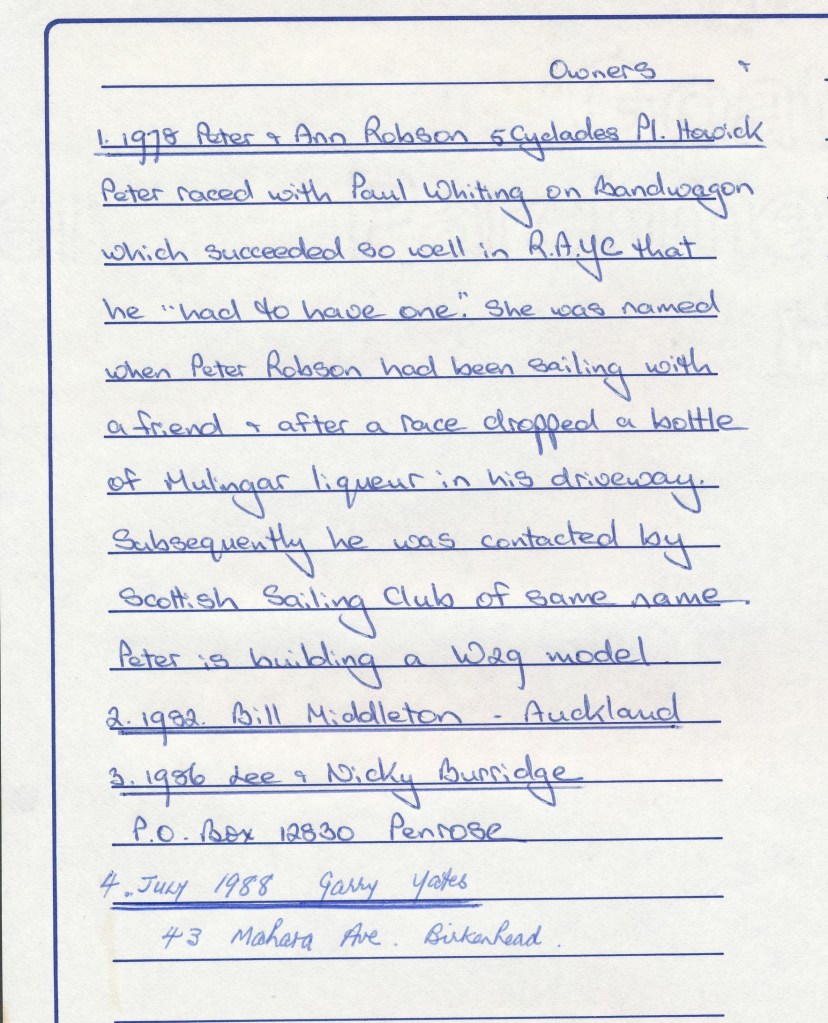 Owners +
1. 1978 Peter + Ann Robson 5 Cyclades Pl. Howick
Peter raced with Paul Whiting on Bandwagon
which succeeded so well in R.A.Y.C that
he "had to have one". She was named
when Peter Robson had been sailing with
a friend + after a race dropped a bottle
of Mulngar liqueur in his driveway.
Subsequently he was contacted by
Scottish Sailing Club of same name.
Peter is building a W29 model
2. 1982. Bill Middleton - Auckland
3. 1986 Lee + Nicky Burridge
P.O. Box 12830 Penrose
4. July 1988 Garry Yates
43 Mahara Ave. Birkenhead.